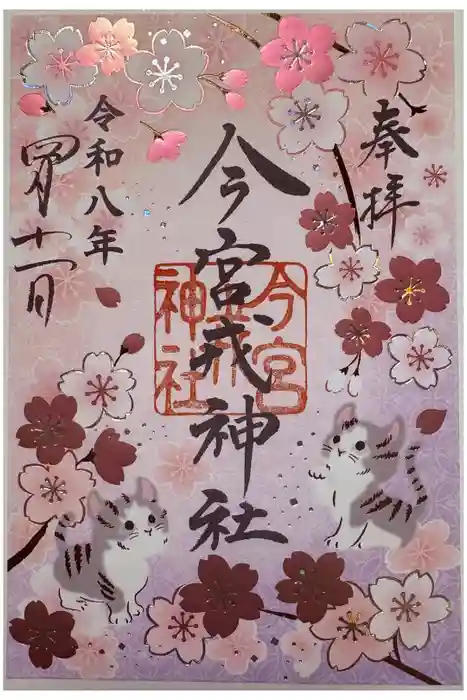 奉拝
今宮戎神社
令和八年
四月十一日
今宮
戎
神社